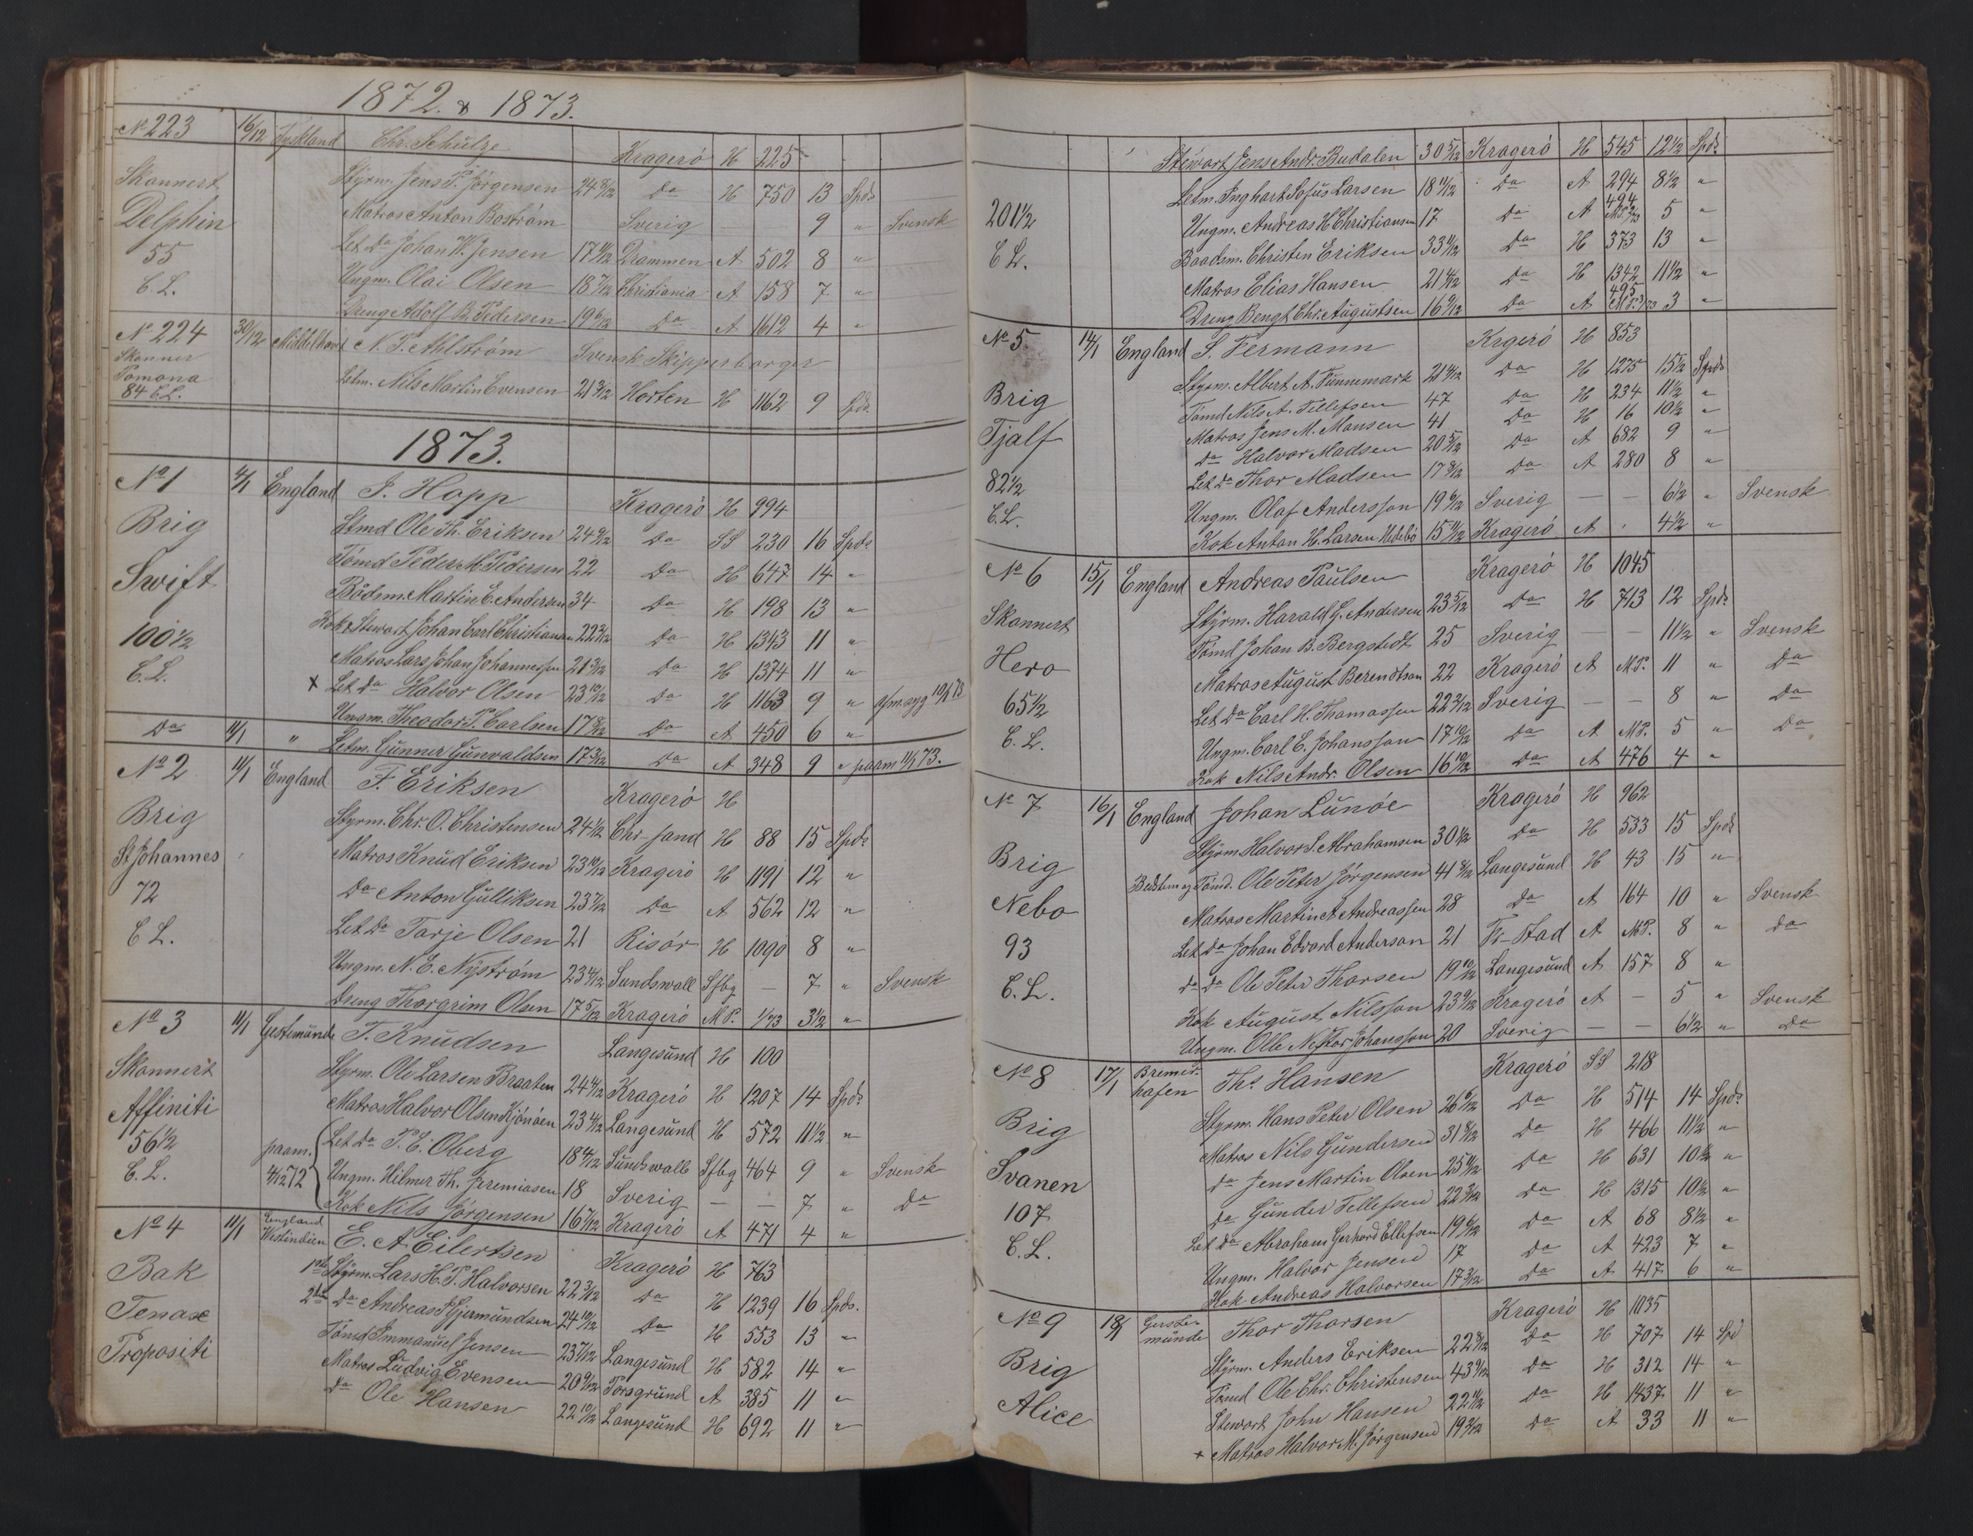 1872 & 1873.
No 223 16/12 Tyskland Chr. Schulze Kragerö H 225
Skonnert Styrm. Jens P. Jørgensen 24 8/12 Do H 750 13 Spds
Delphin Matros Anton Boström Sverig — — 9 " Svensk
55 Let Do Johan W. Jensen 17 11/12 Drammen A 502 8 "
C. L. Ungm. Olai Olsen 18 7/12 Christiania A 158 7 "
Dreng Adolf B. Pedersen 19 6/12 Do A 1612 4 "
No 224 30/12 N. P. Ahlström Svensk Skippersborger
Skonner Pomona 84 C.L. Letm. Nils Martin Evensen 21 3/12 Horten H 1162 9 Spds
1873.
No 1 4/1 England J. Hopp Kragerö H 994
Brig Stmd Ole Th. Eriksen 24 9/12 Do SS 230 16 Spds
Swift Tömd Peder M. Pedersen 22 Do H 647 14 "
Bödsm. Martin E. Andersen 34 Do H 198 13 "
100 1/2 Kok & Stewart Johan Carl Christiansen 22 3/12 Do H 1343 11 "
C. L. Matros Lars Johan Johannessen 21 3/12 Do H 1374 11 "
x Let Do Halvor Olsen 23 10/12 Do H 1163 9 "
Ungm. Theodor P. Carlsen 17 8/12 Do A 450 6 "
Do 11/1 " Letm. Gunner Gunvaldsen 17 3/12 Do A 348 9 " paam 11/1 73.
No 2 11/1 England F. Eriksen Kragerö H
Brig Styrm. Chr. O. Christensen 24 1/12 Chr-sand H 88 15 Spds
St Johannes Matros Knud Eriksen 23 10/12 Kragerö H 1191 12 "
72 Do Anton Gulliksen 23 7/12 Do A 562 12 "
C L. Let Do Tarje Olsen 21 Risör H 1090 8 "
Ungm. N. E. Nyström 23 4/12 Sundswall Sfbg — 7 " Svensk
Dreng Thorgrim Olsen 17 5/12 Kragerö M P. 1/73 3 1/2 "
No 3 11/1 Gestemünde T. Knudsen Langesund H 100
Skonnert Styrm. Ole Larsen Braaten 24 4/12 Kragerö H 1207 14 Spds
Affiniti Matros Halvor Olsen Kjönöen 23 4/12 Langesund H 572 11 1/2 "
56 1/2 paam. Let Do P. E. Oberg 18 4/12 Sundswall Sfbg 464 9 " Svensk
C. L. 4/12 72 Ungm. Hilmer Th. Jeremiasen 18 Sverig — — 7 " Do
Kok Nils Jörgensen 16 7/12 Kragerö A 471 4 "
No 4 11/1 England Westindien E. A. Eilertsen Kragerö H 763
Bak 1ste Styrm. Lars H. P. Halvorsen 22 3/12 Do H 1239 16 Spds.
Tenax 2de Do Andreas Gjermundsen 24 10/12 Do H 553 13 "
Propositi Tömd Immanuel Jensen 23 7/12 Langesund H 582 14 "
Matros Ludvig Evensen 20 9/12 Porsgrund A 385 11 "
Do Ole Hansen 22 10/12 Langesund H 692 11 "
Stewart Jens Andr. Budalen 30 5/12 Kragerö H 545 12 1/2 Spds
Letm. Inghart Sofus Larsen 18 11/12 Do A 294 8 1/2 "
201 1/2 Ungm. Andreas H Christiansen 17 Do A 494 5 "
C L. Baadsm. Christen Eriksen 33 11/12 Do H 373 13 "
Matros Elias Hansen 21 4/12 Do H 1342 11 1/2 "
Dreng Bengt Chr. Augustsen 16 9/12 Do A 495 3 "
No 5. 14/1 England S. Fermann Kragerö H 853
Brig Styrm. Albert A. Funnemark 21 4/12 Do H 1275 15 1/2 Spds
Tömd Nils A. Tellefsen 47 Do H 234 11 1/2 "
Tjalf Matros Jens M. Monsen 41 Do H 16 10 1/2 "
Do Halvor Madsen 20 5/12 Do A 682 9 "
82 1/2 Let Do Thor Madsen 17 8/12 Do A 280 8 "
C.L. Ungm. Olaf Andersson 19 6/12 Sverig — — 6 1/2 " Svensk
Kok Anton H. Larsen Hedebö 15 11/12 Kragerö A " 4 1/2 "
No 6 15/1 England Andreas Paulsen Kragerö H 1045
Skonnert Styrm. Harald G. Andersen 23 5/12 Do H 713 12 Spds
Hero Tömd Johan B. Bergstedt 25 Sverig — — 11 1/2 " Svensk
Matros August Berendtson 22 Kragerö A M.P. 11 " Do
65 1/2 Let Do Carl H. Thomassen 22 2/12 Sverig — — 8 " Do
C. L. Ungm. Carl E. Johansson 17 10/12 Do A M.P. 5 " Do
Kok Nils Andr. Olsen 16 10/12 Do A 476 4 "
No 7 16/1 England Johan Lunöe Kragerö H 962
Brig Styrm Halvor S. Abrahamsen 30 1/2 Do H 533 15 Spds
Bödsm og Tömd. Ole Peter Jörgensen 41 8/12 Langesund H 43 15 "
Nebo Matros Martin A Andreassen 28 Do A 164 10 " Svensk
93 Let Do Johan Edvard Anderson 21 Fr-Stad A M.P. 8 " Do
C. L. Do Do Ole Peter Thorsen 19 10/12 Langesund A 157 8 "
Kok August Nilsson 23 9/12 Kragerö A — 5 " Svensk
Ungm. Olle Nestor Johansson 20 Sverig — — 6 1/2 " Do
No 8 17/1 Bremerhafen Ths. Hansen Kragerö SS 218
Brig Styrm. Hans Peter Olsen 26 6/12 Do H 514 14 Spds
Matros Nils Gundersen 31 8/12 Do H 466 11 1/2 "
Svanen Do Jens Martin Olsen 25 11/12 Do H 631 10 1/2 "
107 Do Gunder Tellefsen 22 3/12 Do H 1315 10 1/2 "
C. L. Let Do Abraham Gerhard Ellefsen 19 6/12 Do A 68 8 1/2 "
Ungm. Halvor Jensen 17 Do A 423 7 "
Kok Andreas Halvorsen 17 3/12 Do A 417 6 "
No 9 18/1 Gestemünde Thor Thorsen Kragerö H 1035
Brig Styrm. Anders Eriksen 22 8/12 Do H 707 14 Spd
Tömd Ole Chr. Christensen 43 9/12 Do H 312 14 "
Alice Stewart John Hansen 22 11/12 Do H 1437 11 "
x Matros Halvor M. Jörgensen 19 2/12 Do A 33 11 "